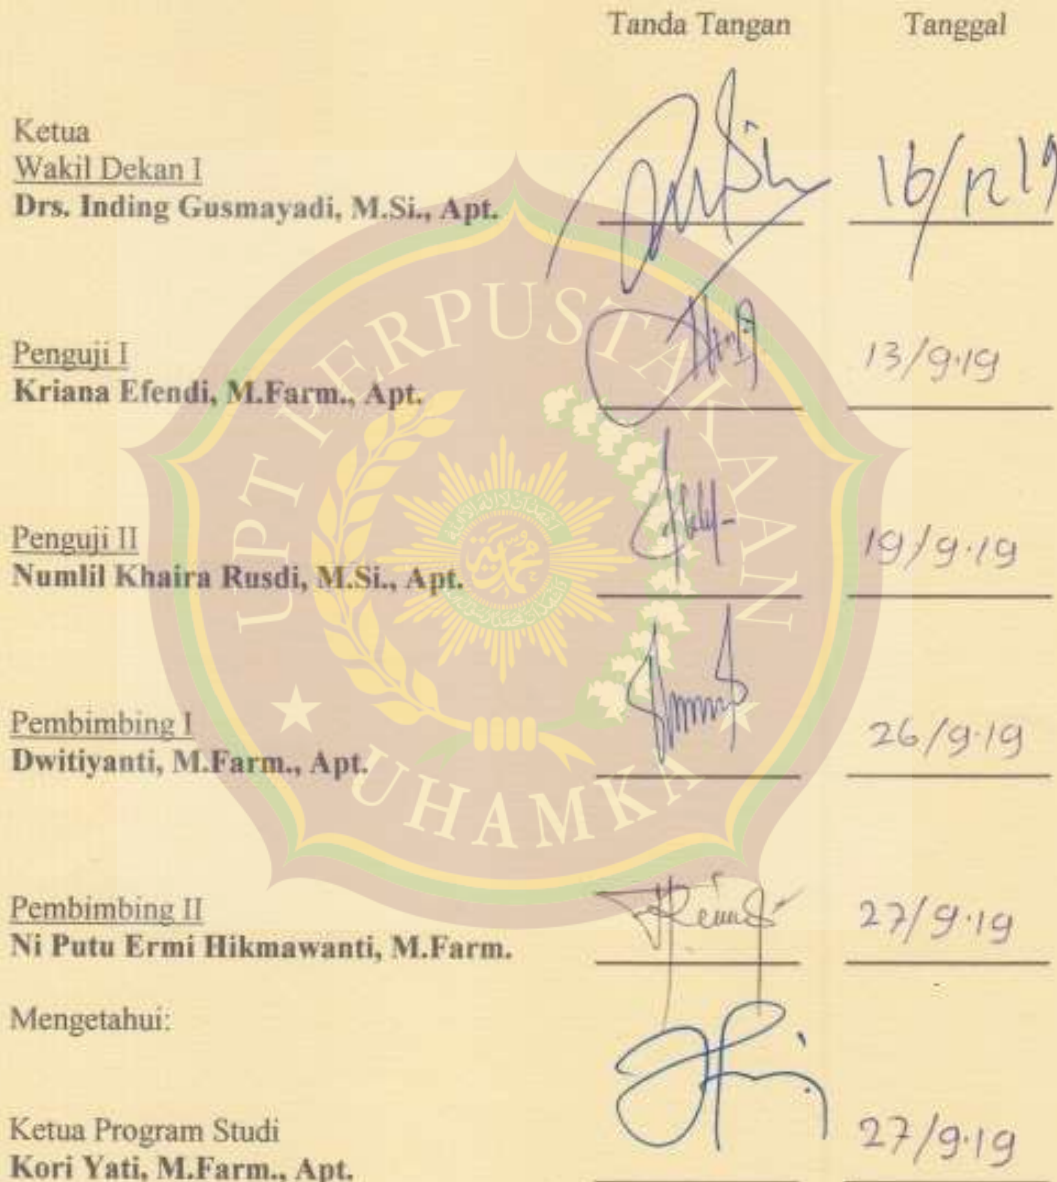 Tanda Tangan Tanggal
Ketua
Wakil Dekan I
Drs. Inding Gusmayadi, M.Si., Apt. 16/12 19
Penguji I
Kriana Efendi, M.Farm., Apt. 13/9.19
Penguji II
Numlil Khaira Rusdi, M.Si., Apt. 19/9.19
Pembimbing I
Dwitiyanti, M.Farm., Apt. 26/9.19
Pembimbing II
Ni Putu Ermi Hikmawanti, M.Farm. 27/9.19
Mengetahui:
Ketua Program Studi
Kori Yati, M.Farm., Apt. 27/9.19
UPT PERPUSTAKAAN
UHAMKA